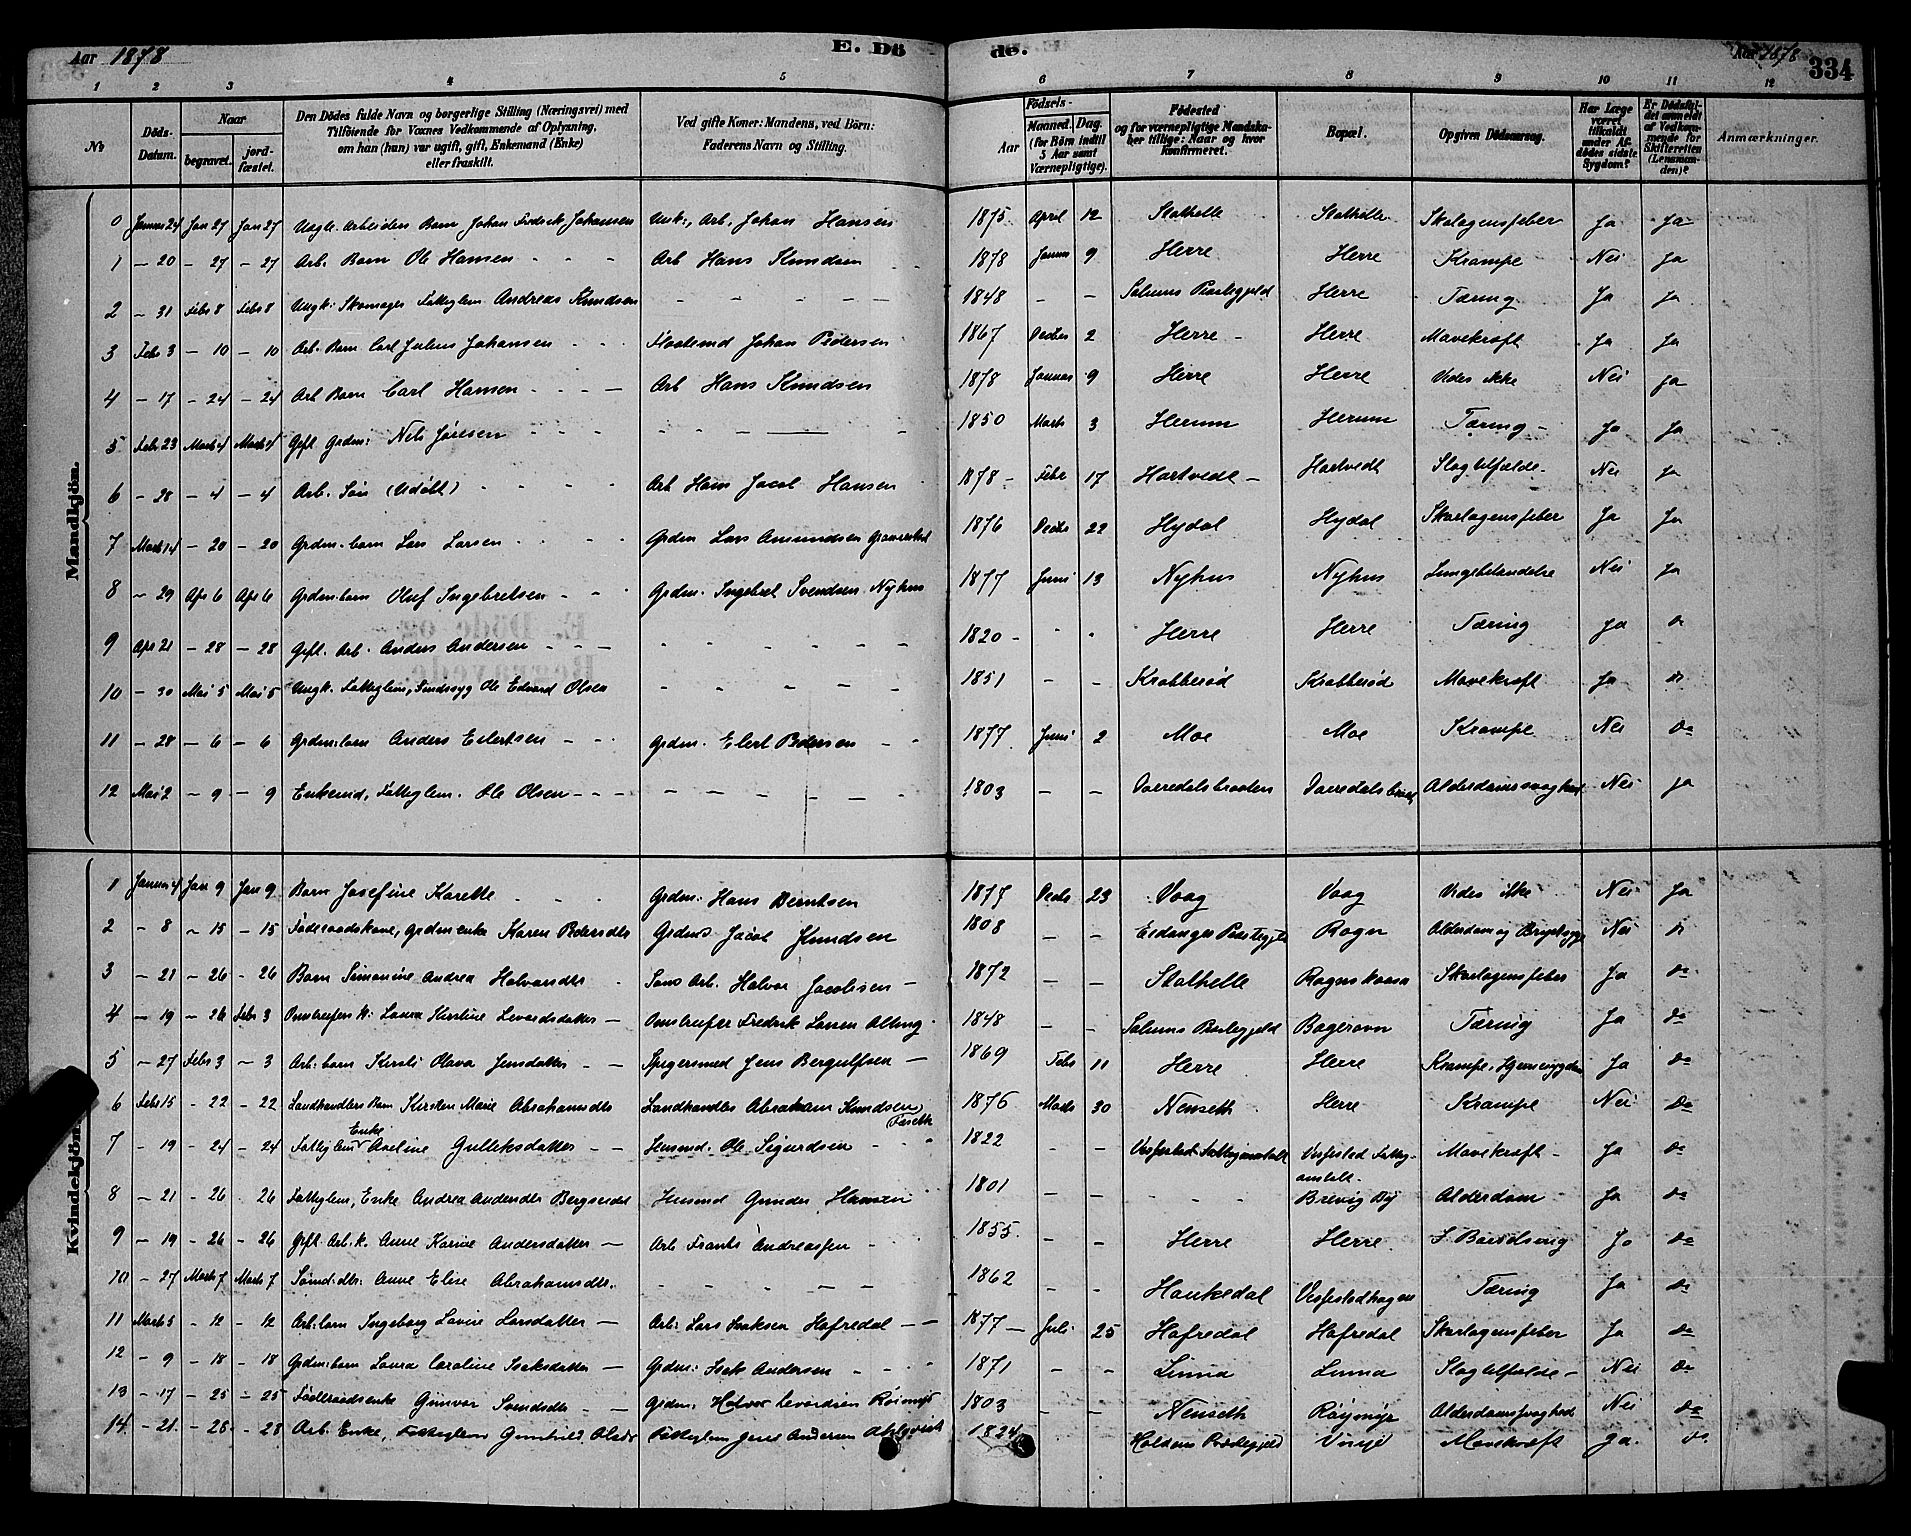 Aar 1878
E. Dö
de.
Aar 1878
334
1 2 3 4 5 6 7 8 9 10 11 12
No
Döds-Datum.
Naar
begravet.
jord-fæstet.
Den Dödes fulde Navn og borgerlige Stilling (Næringsvei) med
Tilföiende for Voxnes Vedkommende af Oplysning,
om han (hun) var ugift, gift, Enkemand (Enke)
eller fraskilt.
Ved gifte Koner: Mandens, ved Börn:
Faderens Navn og Stilling.
Födsels-
Aar
Maaned. Dag.
(for Börn indtil
5 Aar samt
Værnepligtige).
Födested
og for værnepligtige Mandska-
ber tillige: Naar og hvor
konfirmeret.
Bopæl.
Opgiven Dödsaarsag.
Har Læge
været
tilkaldt
under Af-
dødes sidste
Sygdom?
Er Dödsfal-
det anmeldt
af Vedkom-
mende for
Skifteretten
(Lensman-
den)?
Anmærkninger.
Mandkjön.
0 Januar 24 Jan 27 Jan 27 Ungk. Arbeiders Barn Johan Fredrik Johansen Unk:, Arb. Johan Hansen 1875 April 12 Stathelle Stathelle Skalagensfeber Ja Ja
1 – 20 – 27 – 27 Arb. Barn Ole Hansen Arb Hans Knudsen 1878 Januar 9 Herre Herre Krampe Nei Ja
2 – 31 Febr 8 Febr 8 Ungk: Skomager Fatteglem Andreas Knudsen – – – 1848 – – Solums Præstegjeld Herre Tæring Ja Ja
3 Febr 3 – 10 – 10 Arb. Barn Carl Julius Johansen Johan Pedersen 1867 Decbr 2 Herre Herre Mavekræft Ja Ja
4 – 17 – 24 – 24 Arb Barn Carl Hansen Arb Hans Knudsen 1878 Januar 9 Herre Herre Vides ikke Nei Ja
5 Febr 23 Marts 4 Marts 4 Gift Grdm: Nils – – – 1850 Marts 3 Herum Herum Tæring Ja Ja
6 – 28 – 4 – 4 Arb. Søn (Udöbt) Arb Hans Jacob Hansen 1878 Febr 17 Hartvedt Hartvedt Slagtilfælde Nei Ja
7 Marts 14 – 20 – 20 Grdm. barn Lars Larsen Grdm Lars Amundsen 1876 Decbr 22 Hydal Hydal Skarlagensfeber Ja Ja
8 – 29 Apr 6 Apr 6 Grdm. barn Oluf Ingebretsen Grdm. Ingebret Svendsen Nyhus 1877 Juni 13 Nyhus Nyhus Lungebetendelse Nei Ja
9 Apr 21 – 28 – 28 Gift. Arb. Anders Andersen – – – 1820 – – Herre Herre Tæring Ja
10 – 30 Mai 5 Mai 5 Ungk. Fatteglem, Sindssyg Ole Edvard Olsen – – – 1851 – – Krabberød Krabberød Mavekræft Ja
11 – 28 – 6 – 6 Grdm. barn Anders Eilertsen Grdm. Elert Pedersen 1877 Juni 2 Moe Moe Krampe Nei Do
12 Mai 2 – 9 – 9 Enkemd, Fatteglem. Ole Olsen – – – 1803 – – Alderdomssvaghed Nei Ja
Kvindekjön.
1 Januar 4 Jan 9 Jan 9 Barn Josefine Karette Grdm: Hans Berntsen 1877 Decbr 23 Vaag Vaag Vides ikke Nei Ja
2 – 8 – 15 – 15 Föderaadskone, Grdm enke Karen Pedersdtr Grdmd Jacob Knudsen 1808 – – Eidanger Præstegjeld Rogn Alderdom og Nei
3 – 21 – 26 – 26 Barn Simonine Andrea Halvorsdtr Arb. Halvor Jacobsen 1872 – – Stathelle Rognskaasa Skarlagensfeber Ja Do
4 – 19 – 26 Febr 3 Laura Kirstine Levordsdatter Omstreifer Fredrik Larsen 1848 – – Solums Præstegjeld Tæring Ja Do
5 – 27 Febr 3 – 3 Arb: barn Kirsti Olava Jensdatter Spigersmed Jens Bergulfsen 1869 Febr 11 Herre Herre Krampe, Ja Do
6 Febr 15 – 22 – 22 Landhandlers Barn Kirsten Marie Abrahamsdtr Landhandler Abraham Knudsen 1876 Marts 30 Nenseth Herre Krampe Nei Do
7 – 19 – 24 – 24 Fatteglem Enke Axeline Gulleksdatter Husmd. Ole Sigurdsen 1822 – – Vesfestad Fattiganstalt Vesfestad Fattig-
anstalt. Mavekræft Ja Do
8 – 21 – 26 – 26 Fatteglem, Enke Andrea Andersdtr Bergsedal Husmd Gunder Hansen 1801 – – Brevig By Alderdom Ja Do
9 – 19 – 26 – 26 Gift Arb. k. Anne Karine Andersdatter Arb Frants Andreassen 1855 – – Herre Herre I Barselseng Ja Do
10 – 27 Marts 7 Marts 7 Anne Elise Abrahamsdtr. – – – 1862 – – Haukedal Vesfestadhagen Tæring Ja Do
11 Marts 5 – 12 – 12 Arb: barn Ingeborg Lovise Larsdatter Arb: Lars Isaksen Hafredal 1877 Juli 25 Hafredal Hafredal Skarlagensfeber Ja Do
12 – 9 – 18 – 18 Grdm: barn Laura Caroline Isaksdatter Grdm: Isak Andersen 1871 – – Linna Linna Slagtilfælde Nei Do
13 – 17 – 25 – 25 Föderaadsenke Gunvor Svendsdtr Grdm: Halvor Levordsen Röimyr 1803 – – Nenseth Röymyr Alderdomssvaghed Nei Do
14 – 21 – 28 – 28 Arb. Enke, Fatteglem Gunhild Olsdr Fatteglem Jens Andersen 1824 Holdens Præstegjeld Mavekræft Ja Do